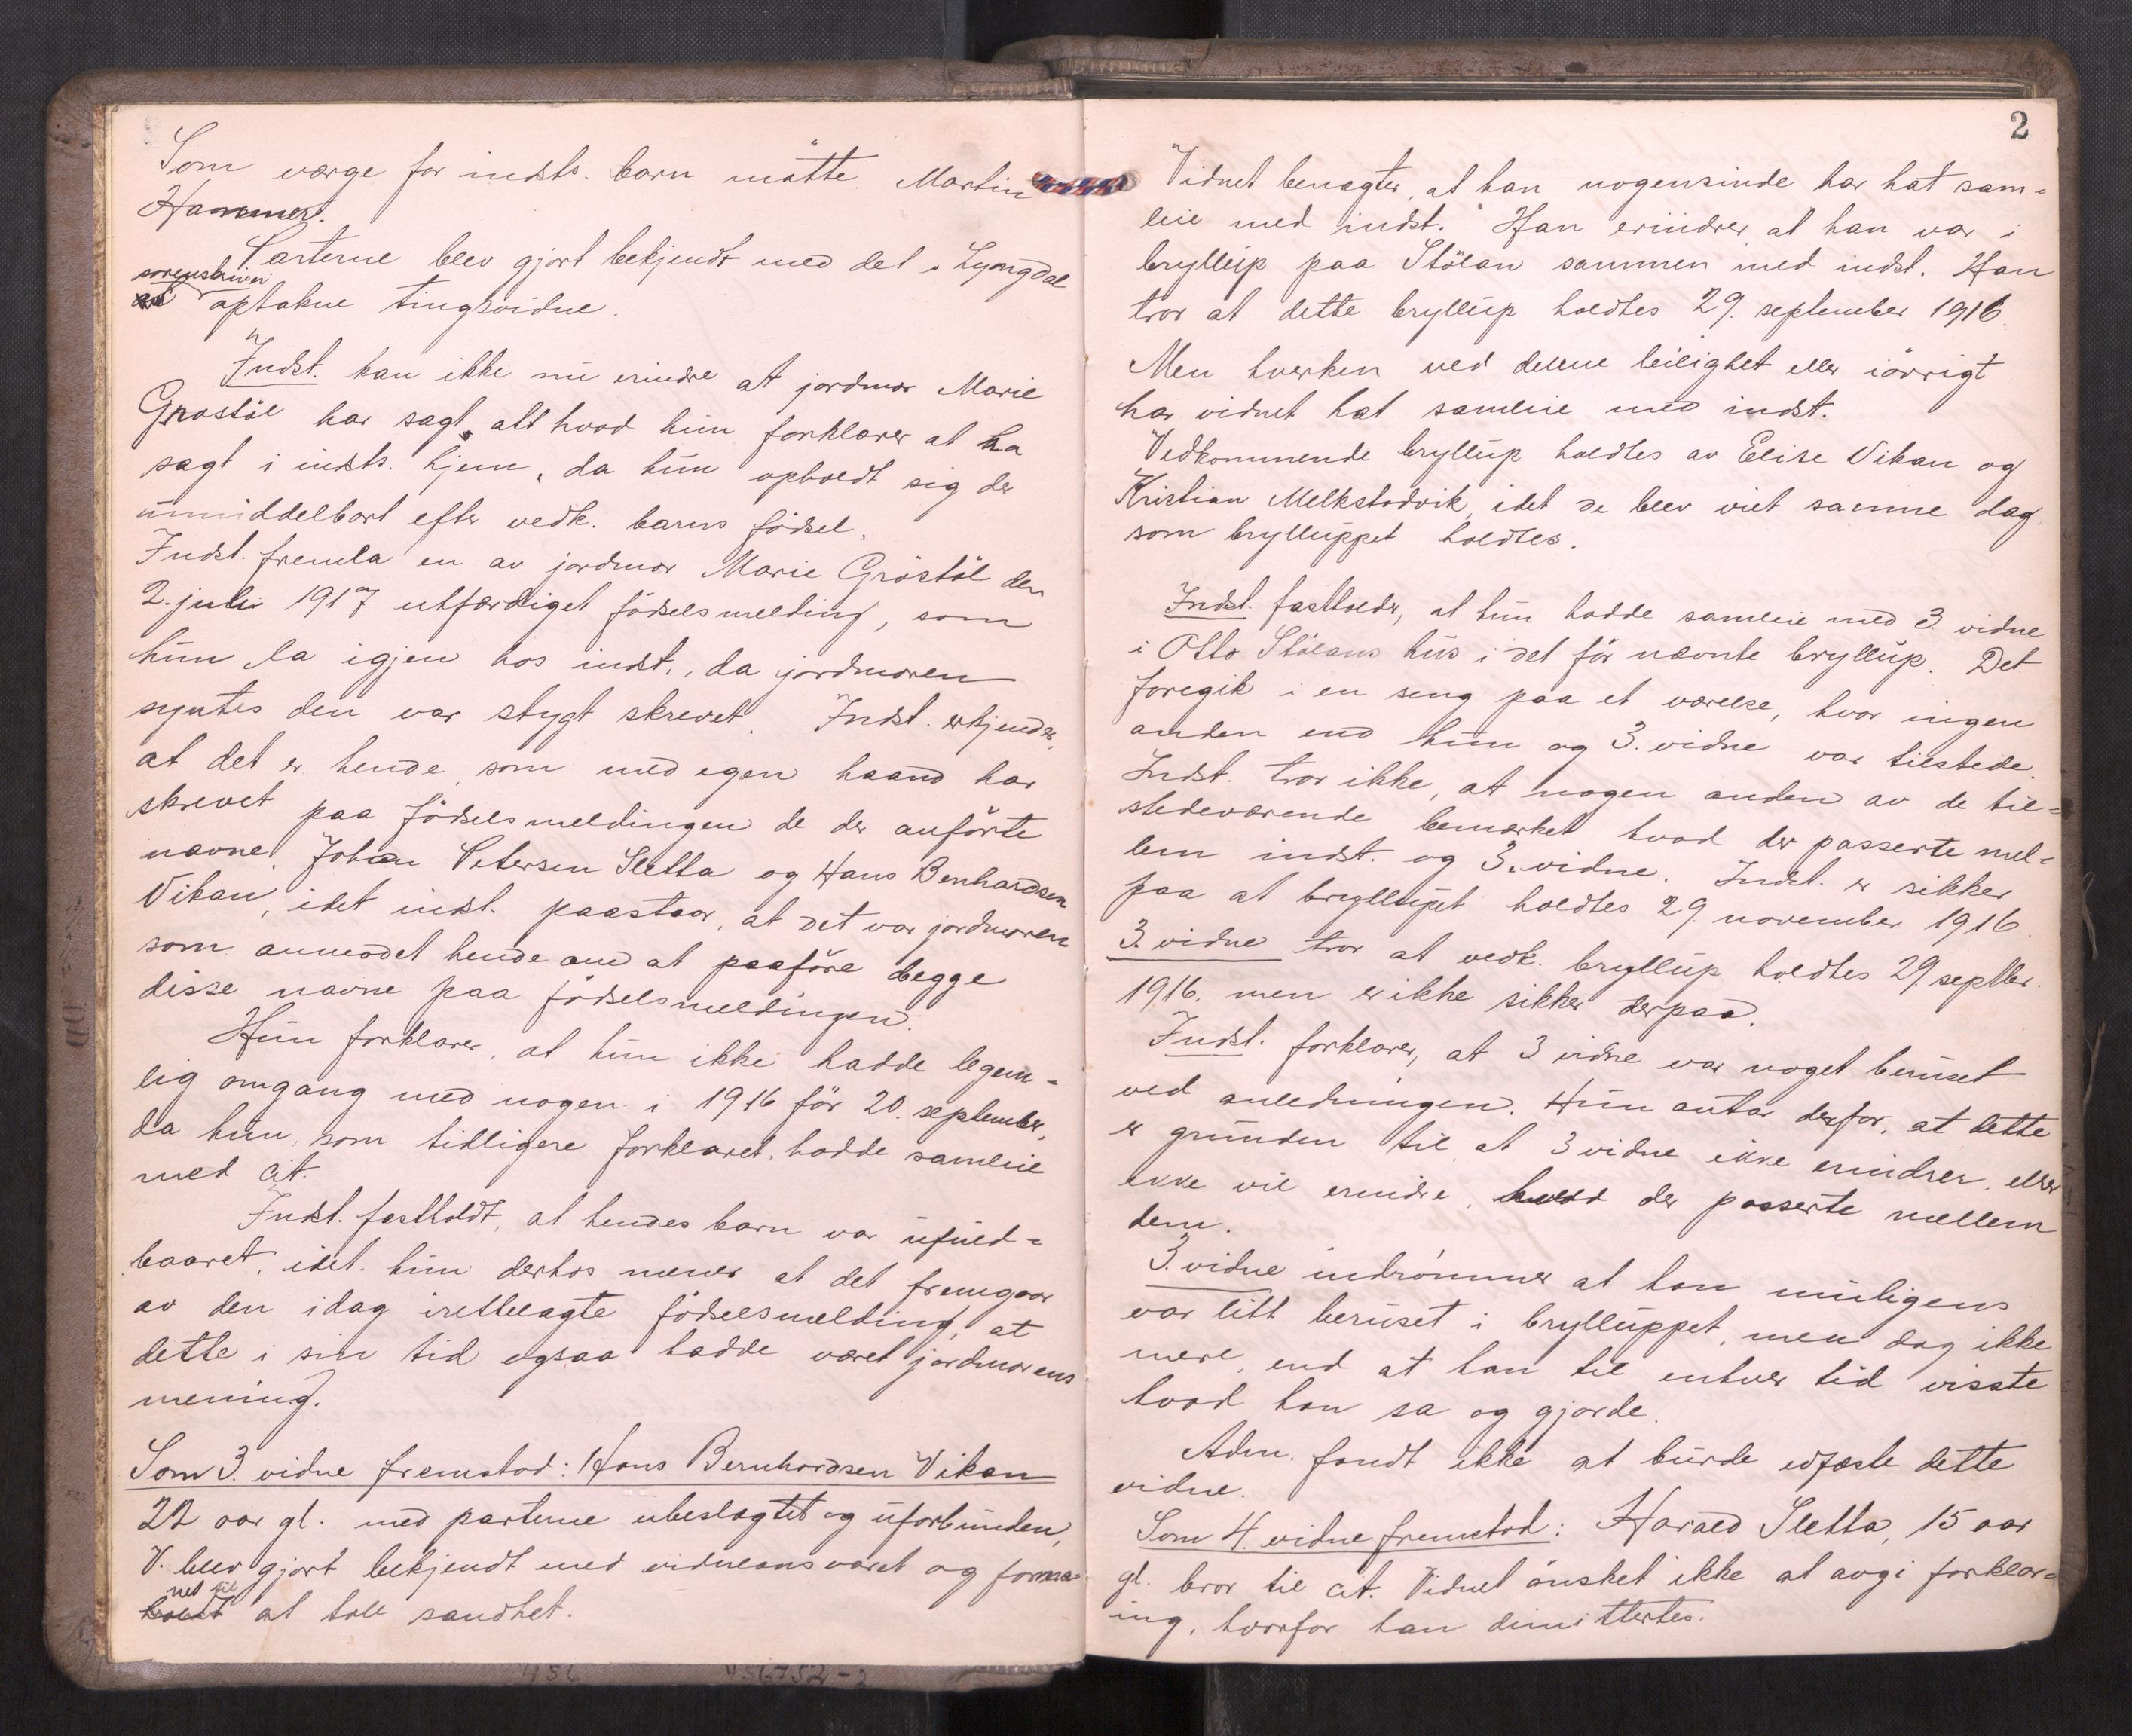 Som værge for indsts. barn møtte Martin
Hammer.
Parterne blev gjort bekjendt med det i Lyngdal
sorenskriveri
optakne tingsvidne.
Indst. kan ikke nu erindre at jordmor Marie
Grøstøl har sagt alt hvad hun forklarer at ha
sagt i indsts. hjem, da hun opholdt sig der
umiddelbart efter vedk. barns fødsel.
Indst. fremla en av jordmor Marie Grøstøl den
2. juli 1917 utfærdiget fødselsmelding, som
hun la igjen hos indst., da jordmoren
syntes den var stygt skrevet. Indst. erkjender,
at det er hende, som med egen haand har
skrevet paa fødselsmeldingen de der anførte
navne: Johan Petersen Sletta og Hans Bernhardsen
Vikan, idet indst. paastaar, at det var jordmoren
som anmodet hende om at paaføre begge
disse navne paa fødselsmeldingen.
Hun forklarer, at hun ikke hadde legem=
lig omgang med nogen i 1916 før 20. september,
da hun, som tidligere forklaret, hadde samleie
med cit.
Indst. fastholdt, at hendes barn var ufuld=
baaret, idet hun derhos mener at det fremgaar
av den idag iretteLagte fødselsmelding, at
dette i sin tid ogsaa hadde været jordmorens
mening.
Som 3. vidne fremstod: Hans Bernhardsen Vikan
22 aar gl. med parterne ubeslægtet og uforbunden,
V. blev gjort bekjendt med vidneansvaret og forma=
net til
holdt at tale sandhet.
2
Vidnet benægter, at han nogensinde har hat sam=
leie med indst. Han erindrer at han var i
bryllup paa Stølan sammen med indst. Han
tror at dette bryllup holdtes 29. september 1916.
Men hverken ved denne leilighet eller iøvrigt
har vidnet hat samleie med indst.
Vedkommende bryllup holdtes av Elise Vikan og
Kristian Melkstadvik, idet de blev viet samme dag
som brylluppet holdtes.
Indst. fastholder, at hun hadde samleie med 3. vidne
i Otto Stølans hus i det før nævnte bryllup. Det
foregik i en seng paa et værelse, hvor ingen
anden end hun og 3. vidne var tilstede.
Indst. tror ikke, at nogen anden av de til=
stedeværende bemærket hvad der passerte mel=
lem indst. og 3. vidne. Indst. er sikker
paa at bryllupet holdtes 29. november 1916.
3. vidne tror at vedk. bryllup holdtes 29. septbr.
1916. men er ikke sikker derpaa.
Indst. forklarer, at 3 vidne var noget beruset
ved anledningen. Hun antar derfor, at dette
er grunden til at 3 vidne ikke erindrer, eller
ikke vil erindre, hvad der passerte mellem
dem.
3. vidne indrømmer at han muligens
var litt beruset i brylluppet, men dog ikke
mere, end at han til enhver tid visste
hvad han sa og gjorde.
Adm. fandt ikke at burde edfæste dette
vidne.
Som 4. vidne fremstod: Harald Sletta, 15 aar
gl. bror til cit. Vidnet ønsket ikke at avgi forklar=
ing, hvorfor han dimittertes.